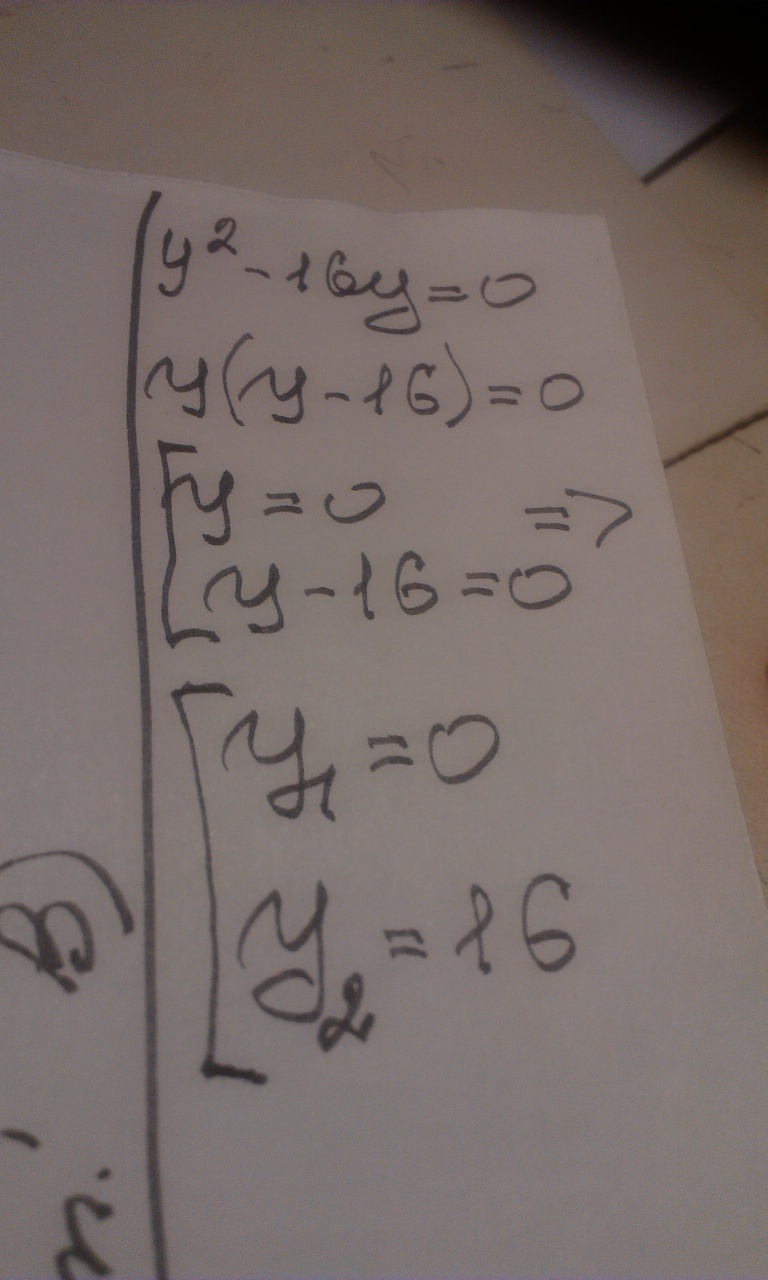 y² - 16y = 0
y(y - 16) = 0
[y = 0 =>
[y - 16 = 0
[y₁ = 0
[y₂ = 16